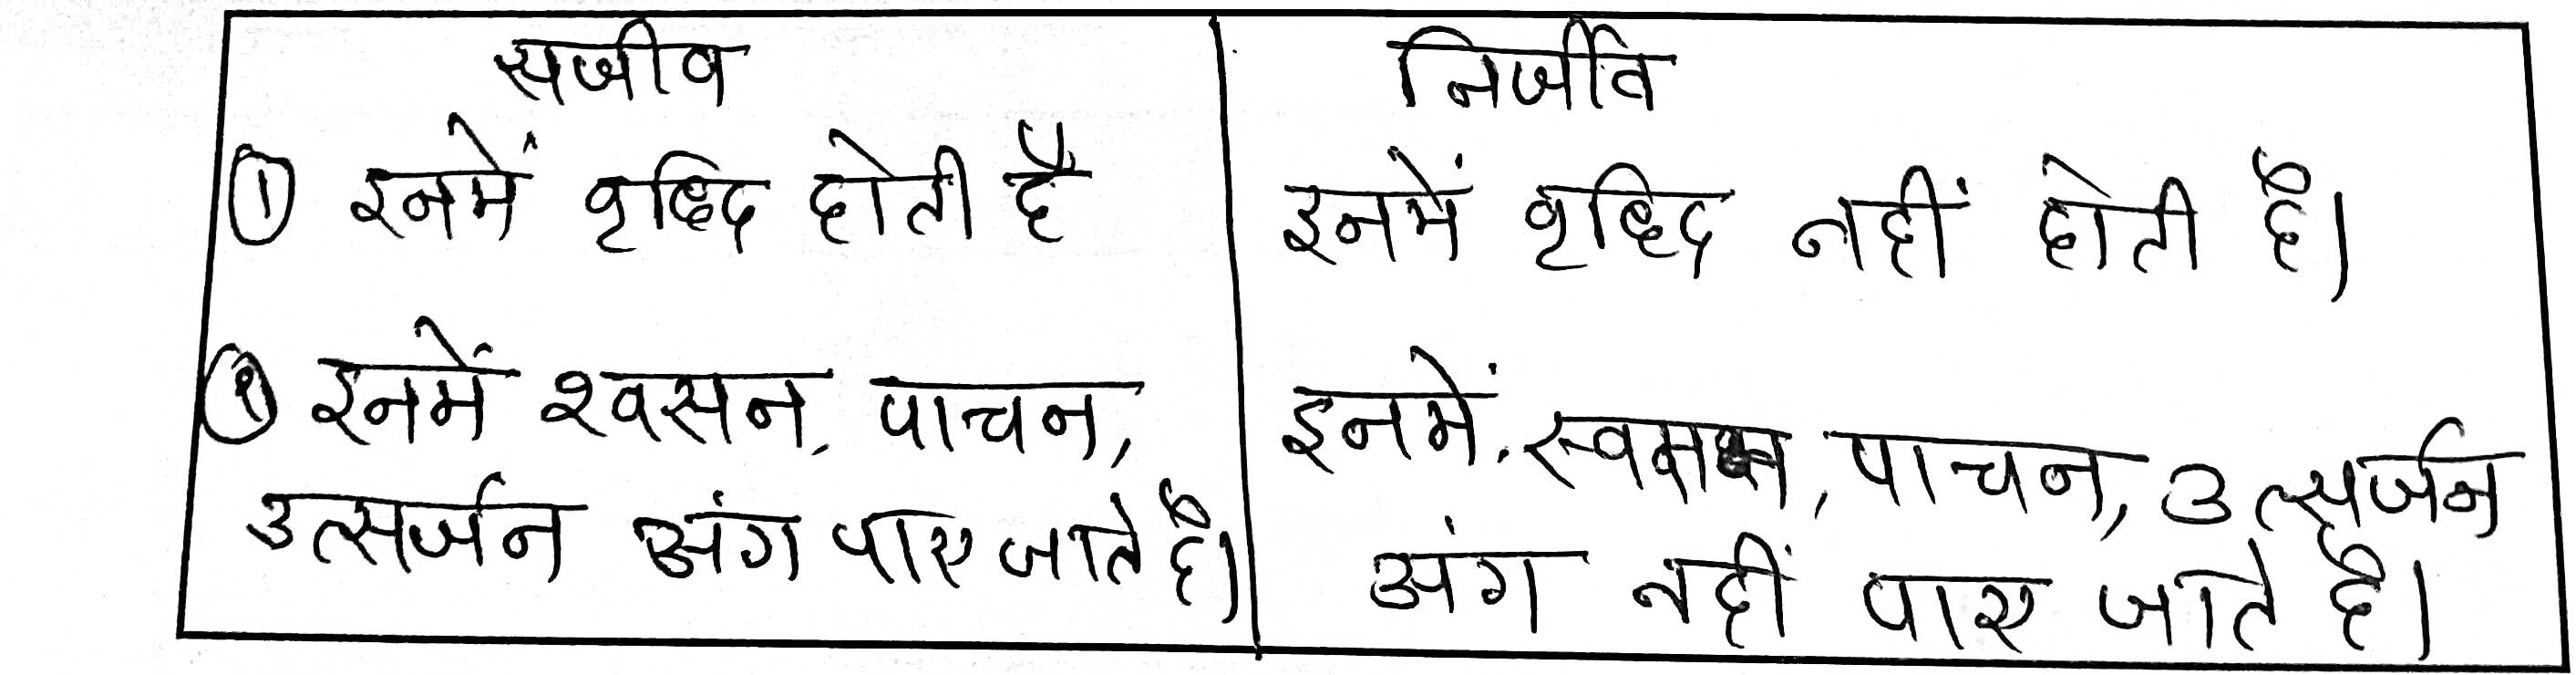 सजीव
निर्जीव
① इनमें वृद्धि होती है
इनमें वृद्धि नहीं होती है।
② इनमें श्वसन, पाचन,
उत्सर्जन अंग पाए जाते है।
इनमें, पाचन, उत्सर्जन
अंग नहीं पाए जाते है।